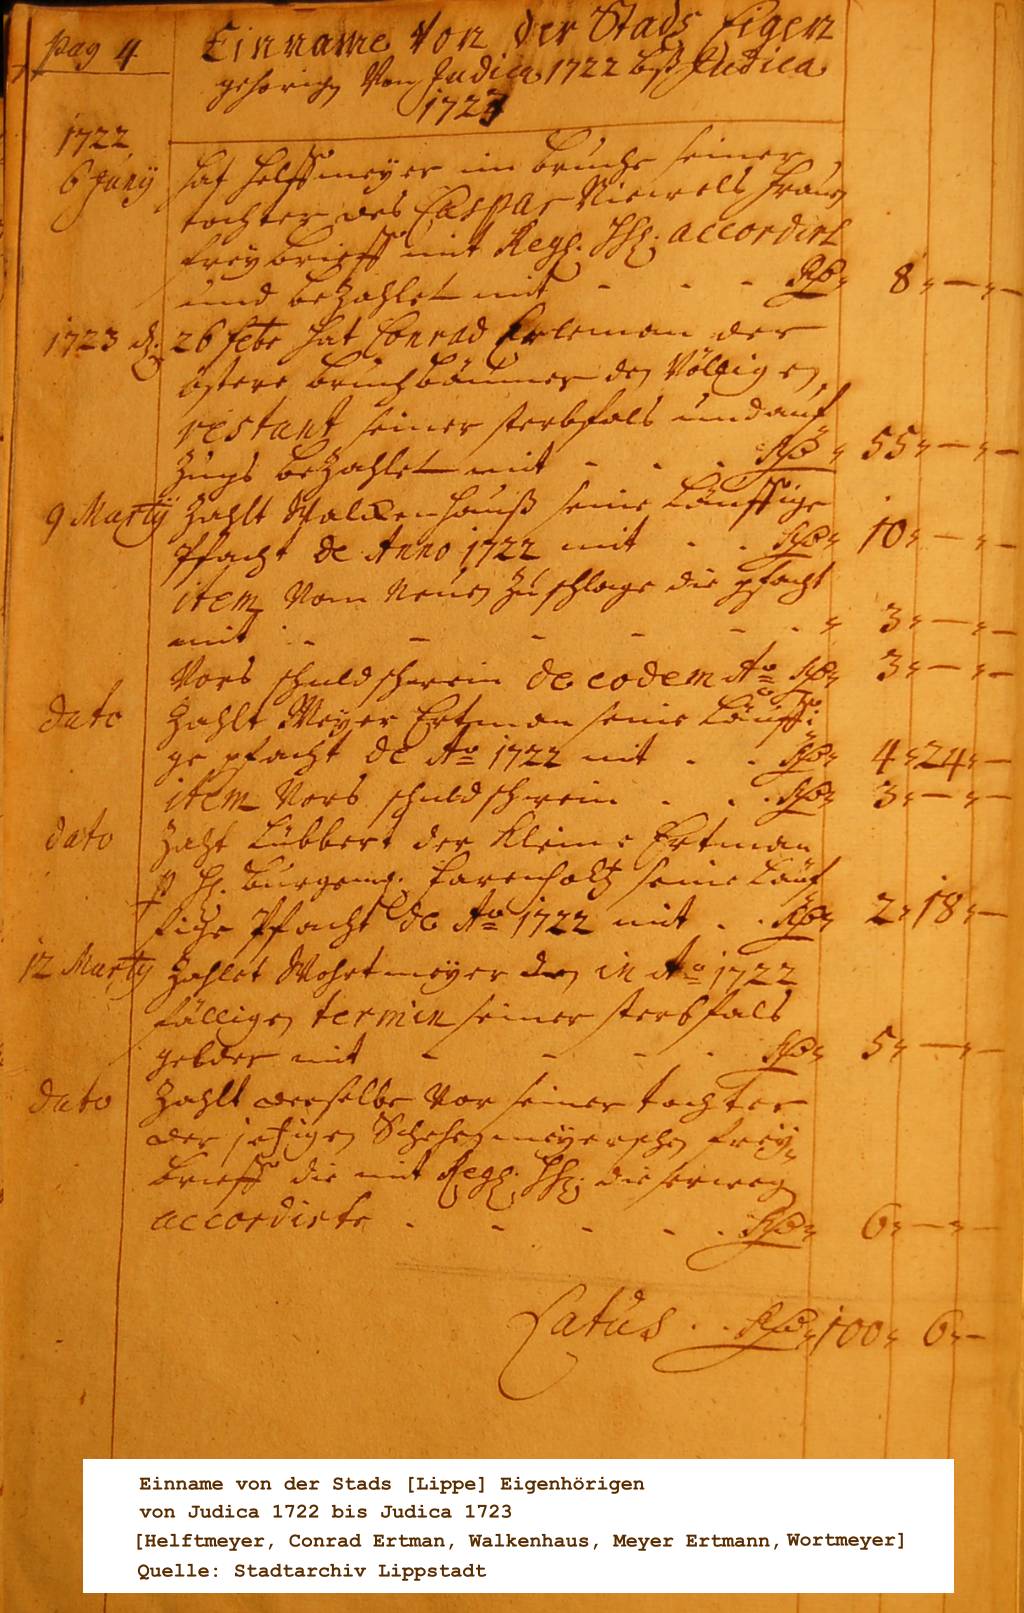 pag 4.
Einname Von der Stads Eigen
gehorigen Von Judica 1722 biß Judica
1723
1722
6 Junÿ hat Helffmeÿer im bruche seiner
tochter des Caspar Niewels Frawen
freÿbrieff mit accordirt
und bezahlet mit - - - Rthr 8 „ — „ —
1723 d. 26 Febr hat Conrad Erleman der
östere bruchbäumer den Völligen
restant seiner sterbfals und auf
Zugs bezahlet mit - - - Rthr „ 55 „ — „ —
9 Martÿ Zahlt Walkenhauß seine Läuffige
Pfacht de Anno 1722 mit - - Rthr 10 „ — „ —
item Vom Neuen Zuschlage die pfacht
mit - - - - - - „ 3 „ — „ —
Vors schuldschwein de eodem Ao Rthr 3 „ — „ —
dato Zahlt Meÿer Ertman seine Läuffi:
ge pfacht de Ao 1722 mit - - Rthr 4 „ 24 „ —
item Vors schuldschwein - - - Rthr 3 „ — „ —
dato Zahlt Lübbert der Kleine Ertman
p H. burgem. Farenholtz seine Läuf
fige Pfacht de Ao 1722 mit - - Rthr 2 „ 18 „ —
12 Martÿ Zahlet Wohrtmeÿer den in Ao 1722
fälligen termin seiner sterbfals
gelder mit - - - - Rthr 5 „ — „ —
dato Zahlt derselbe Vor seiner tochter
der jetzigen freÿ„
brieff die mit dieserweg
accordirte - - - - - Rthr 6 „ — „ —
Latus - - Rthr 100 „ 6 „ —
Einname von der Stads [Lippe] Eigenhörigen
von Judica 1722 bis Judica 1723
[Helftmeyer, Conrad Ertman, Walkenhaus, Meyer Ertmann, Wortmeyer]
Quelle: Stadtarchiv Lippstadt